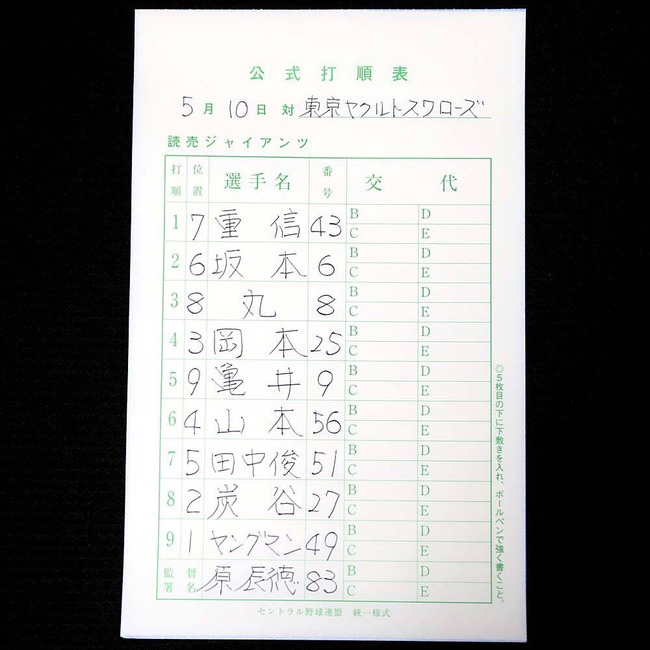 公式打順表
5月10日 対 東京ヤクルトスワローズ
読売ジャイアンツ
打順 位置 選手名 番号 交代
1 7 重信 43 B D C E
2 6 坂本 6 B D C E
3 8 丸 8 B D C E
4 3 岡本 25 B D C E
5 9 亀井 9 B D C E
6 4 山本 56 B D C E
7 5 田中俊 51 B D C E
8 2 炭谷 27 B D C E
9 1 ヤングマン 49 B D C E
監督署名 原辰徳 83 B D C E
セントラル野球連盟 統一様式
◎5枚目の下に下敷きを入れ、ボールペンで強く書くこと。